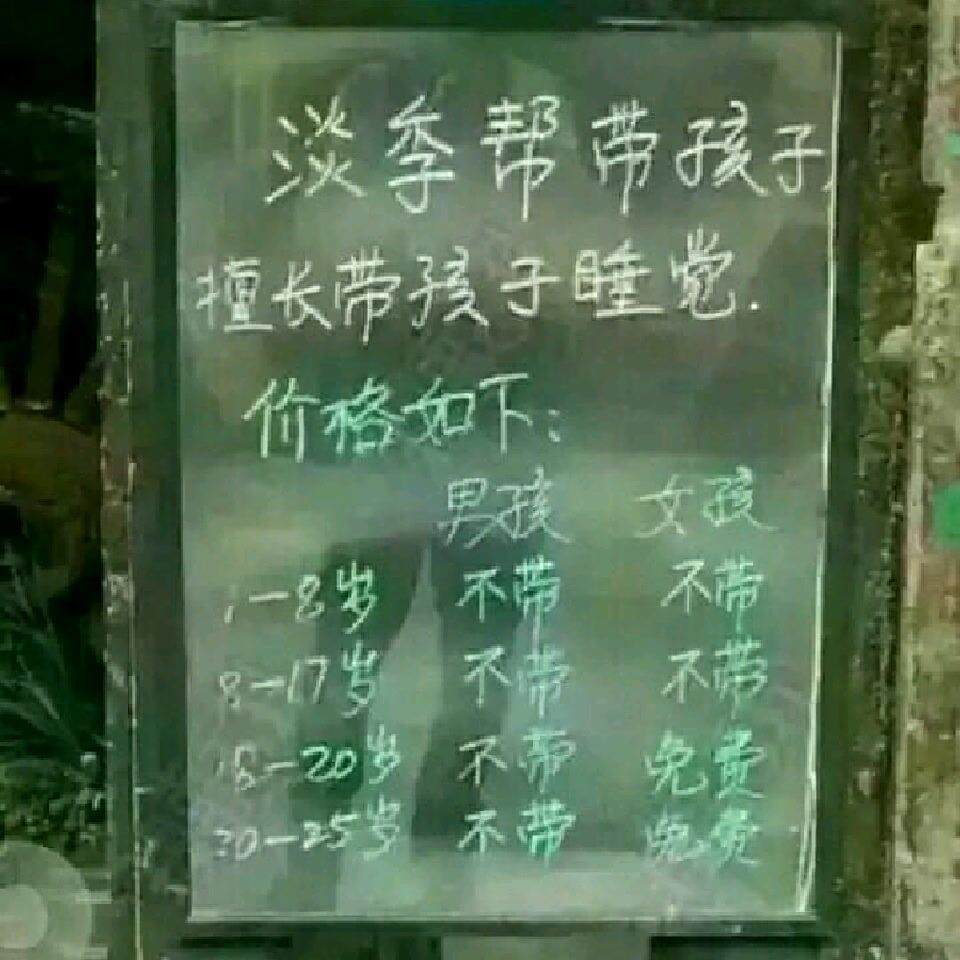 淡季帮带孩子,
擅长带孩子睡觉.
价格如下:
男孩 女孩
1-8岁 不带 不带
8-17岁 不带 不带
18-20岁 不带 免费
20-25岁 不带 免费